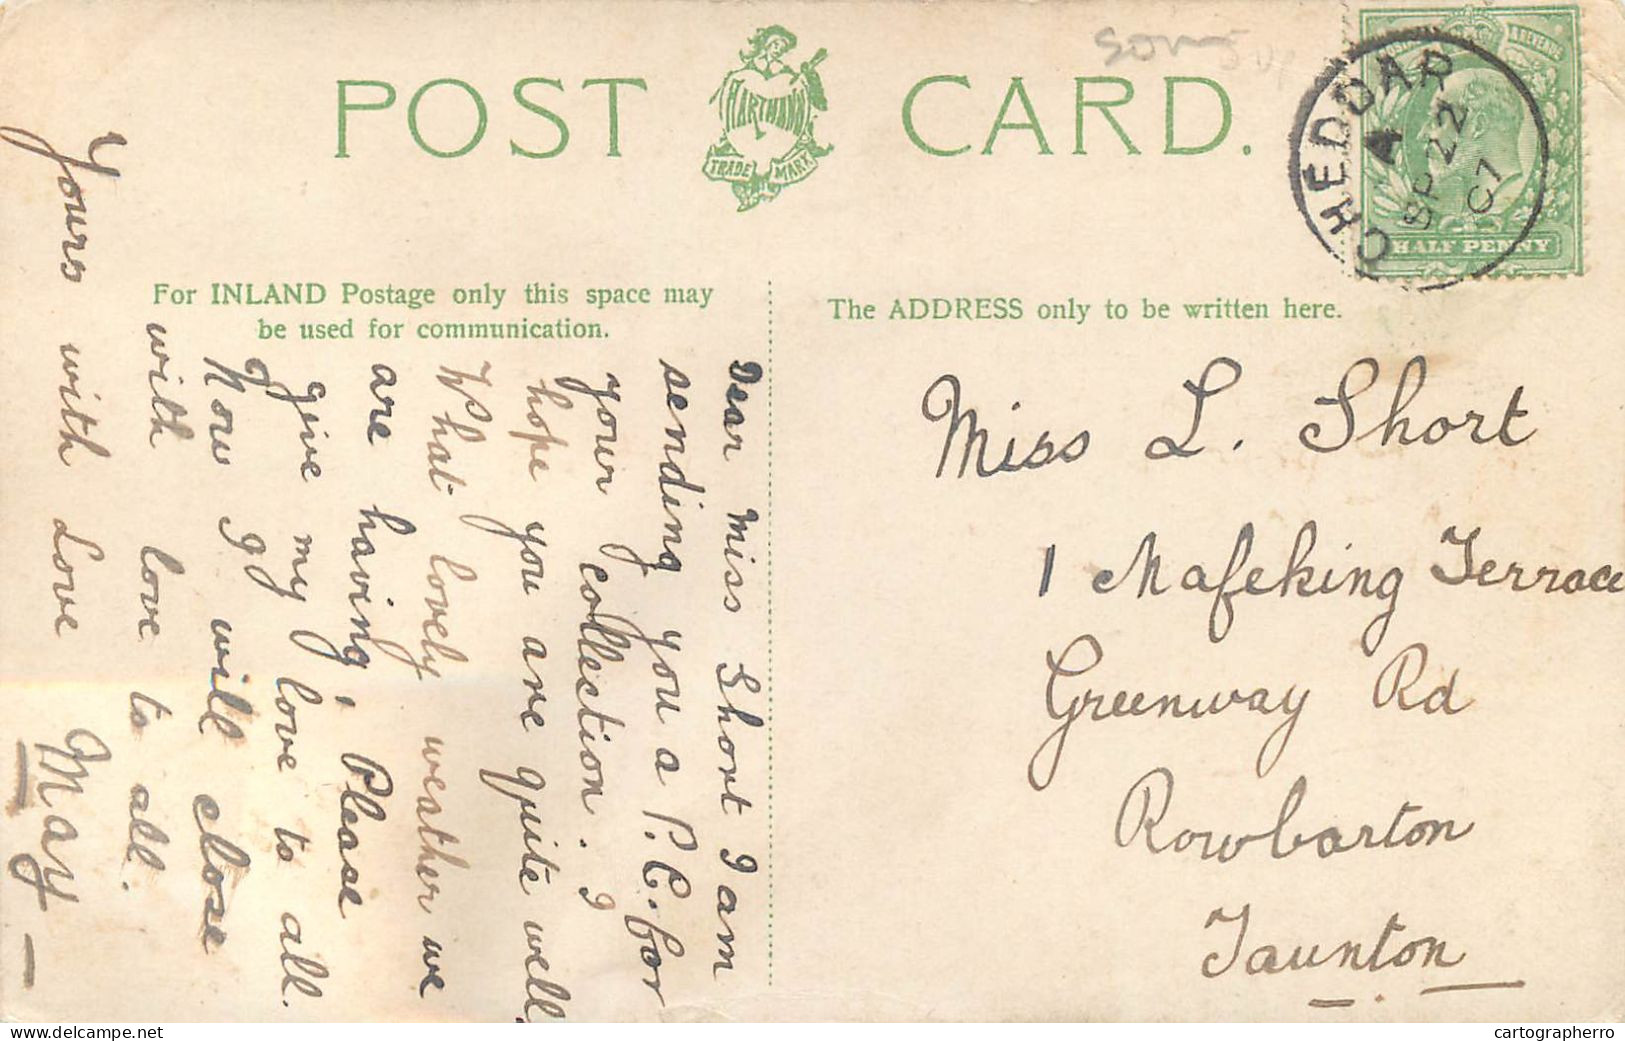 POST CARD.
HARTMANN
TRADE MARK
POSTAGE & REVENUE
HALF PENNY
CHEDDAR
A
SP 22
07
For INLAND Postage only this space may
be used for communication.
The ADDRESS only to be written here.
Dear Miss Short I am
sending you a P.C. for
your collection. I
hope you are quite well
What lovely weather we
are having, Please
give my love to all.
Now I will close
with love to all.
Yours with Love
May
Miss L. Short
1 Mafeking Terrace
Greenway Rd
Rowbarton
Taunton
www.delcampe.net
cartographerro